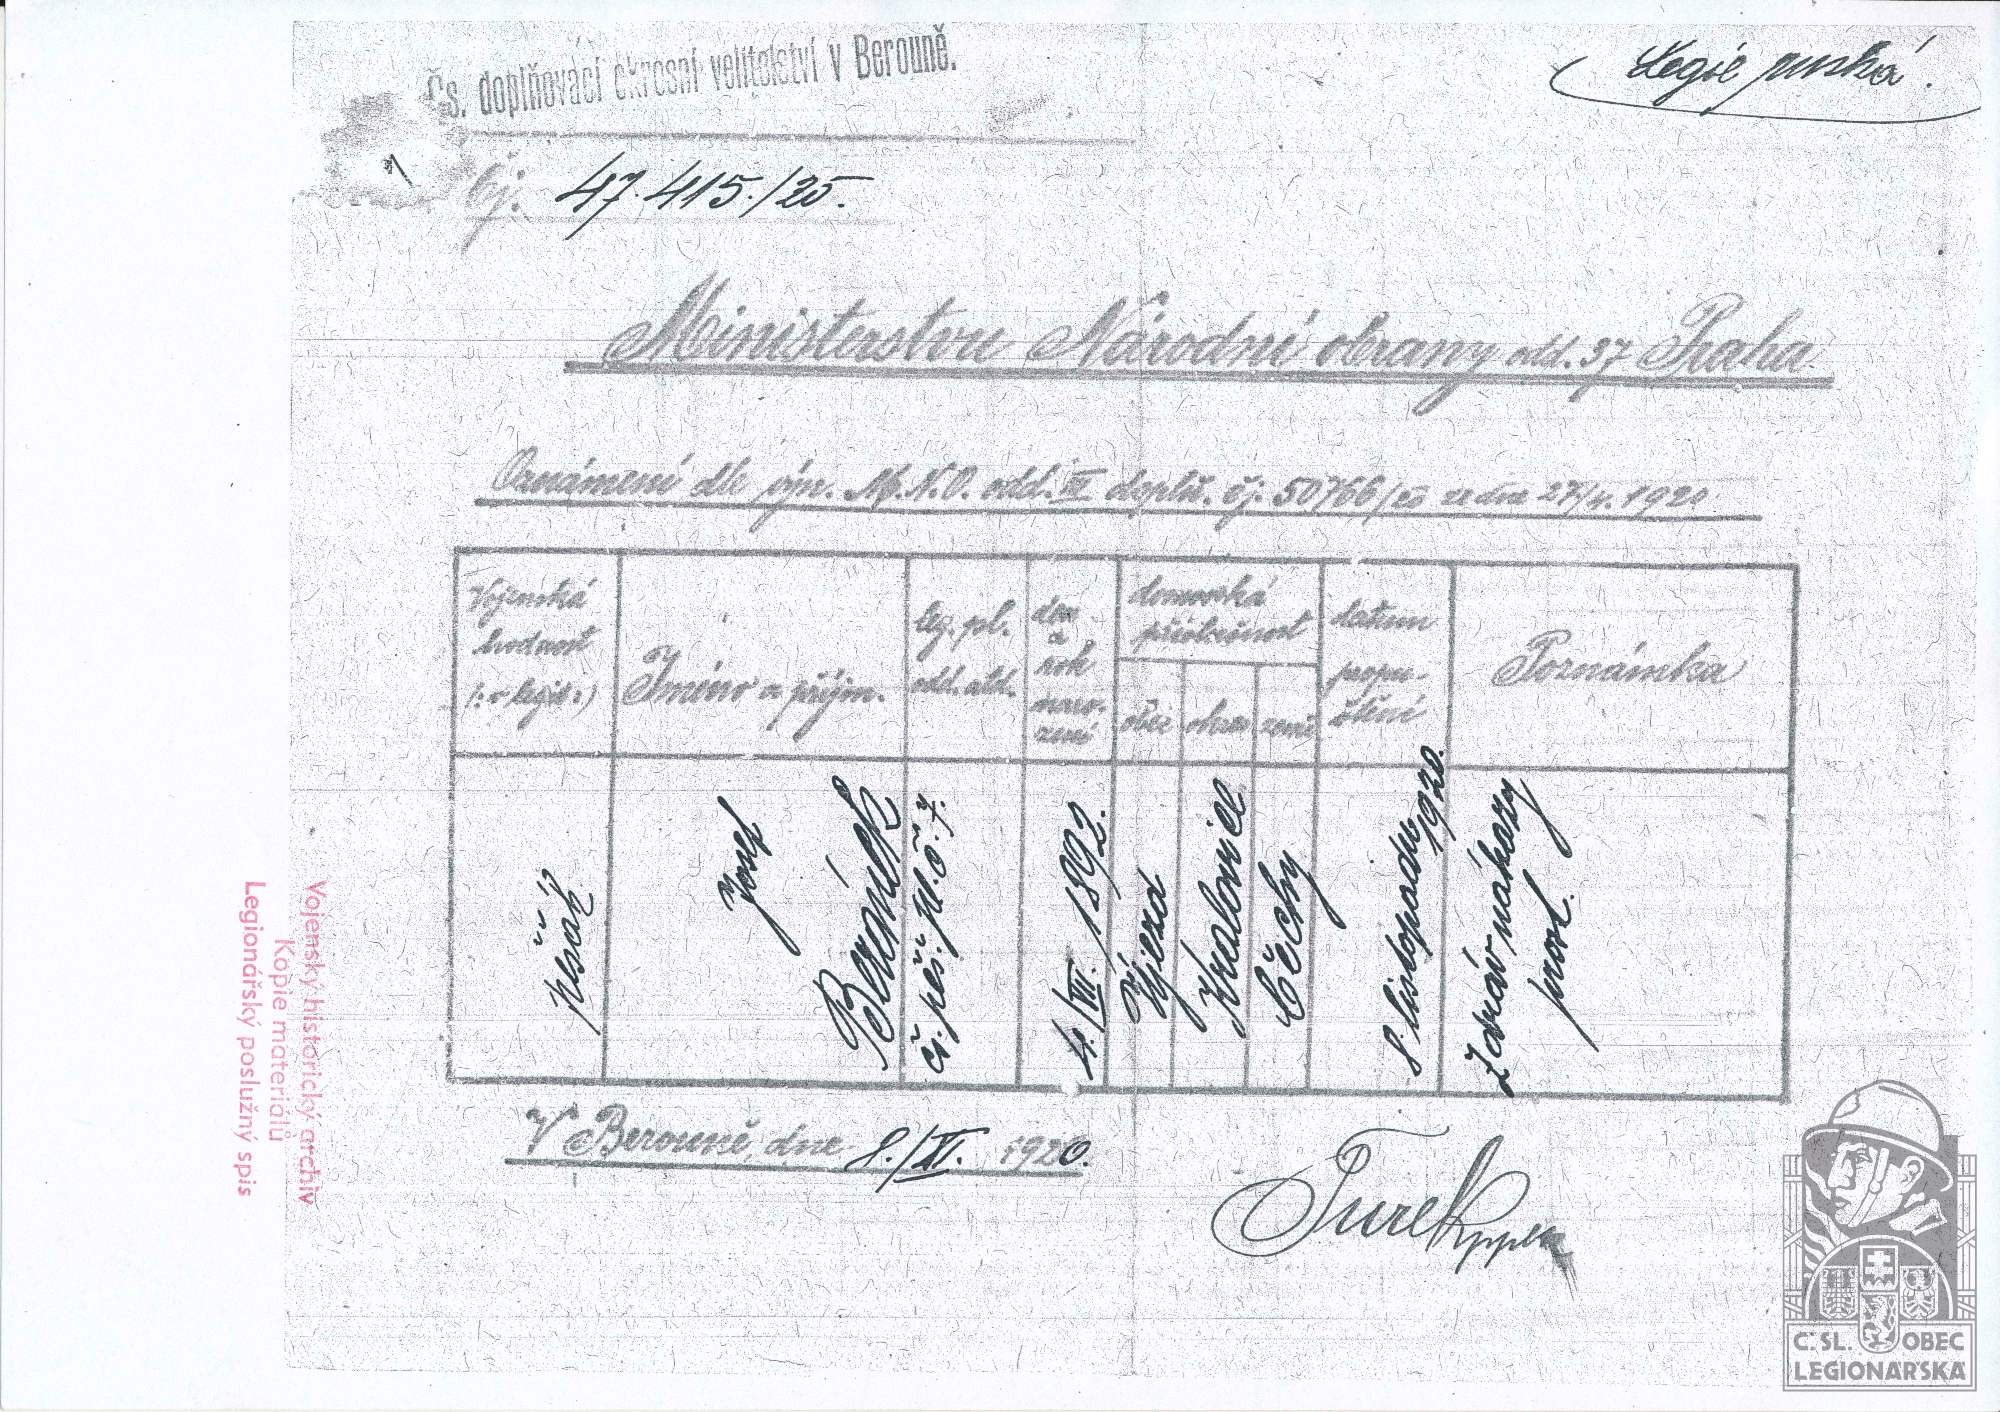 Čs. doplňovací okresní velitelství v Berouně.
Legie ruská.
Čj. 47.415./20.
Ministerstvu Národní obrany odd. 37 Praha
Oznámení dle výn. M.N.O. odd. III doplň. čj. 50766/20 ze dne 27/4. 1920.
Vojenská
hodnost
(: v legii :)
Jméno a příjm.
leg. pl.
odd. atd.
den
a
rok
naro-
zení
domovská
příslušnost
obec
okres
země
datum
propu-
štění
Poznámka
Pěšák
Josef
Beránek
čs. pěš. pl. č. 7.
4./VII. 1892.
Újezd
Kralovice
Čechy
8. listopadu
1920.
V Berouně, dne 8./XI. 1920.
Turek
Vojenský historický archiv
Kopie materiálů
Legionářský poslužný spis
Č.SL. OBEC
LEGIONÁŘSKÁ